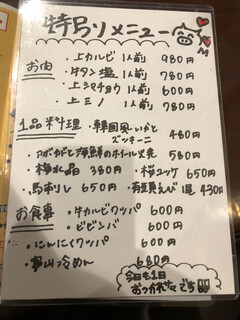 特別メニュー
お肉
・上カルビ 1人前 980円
・牛タン塩 1人前 780円
・上シマチョウ 1人前 600円
・上ミノ 1人前 780円
1品料理
・韓国風いかと
ズッキーニ 480円
・アボカドと海鮮のホイル焼 580円
380円 ・桜ユッケ 650円
・馬刺し 650円 430円
お食事
・牛カルビクッパ 600円
・ビビンバ 600円
・にんにくクッパ 600円
・冷めん 680円
今日も1日
おつかれさまです